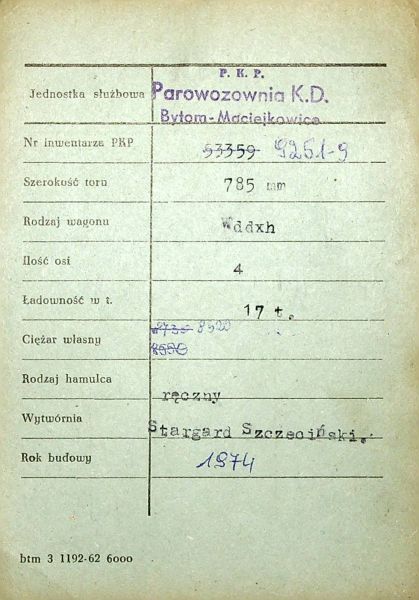 P. K. P.
Jednostka służbowa Parowozownia K.D.
Bytom-Maciejkowice
Nr inwentarza PKP 53359 9251-9
Szerokość toru 785 mm
Rodzaj wagonu Wddxh
Ilość osi 4
Ładowność w t. 17 t.
8735 8520
Ciężar własny
8550
Rodzaj hamulca ręczny
Wytwórnia Stargard Szczeciński.
Rok budowy 1974
btm 3 1192-62 6000